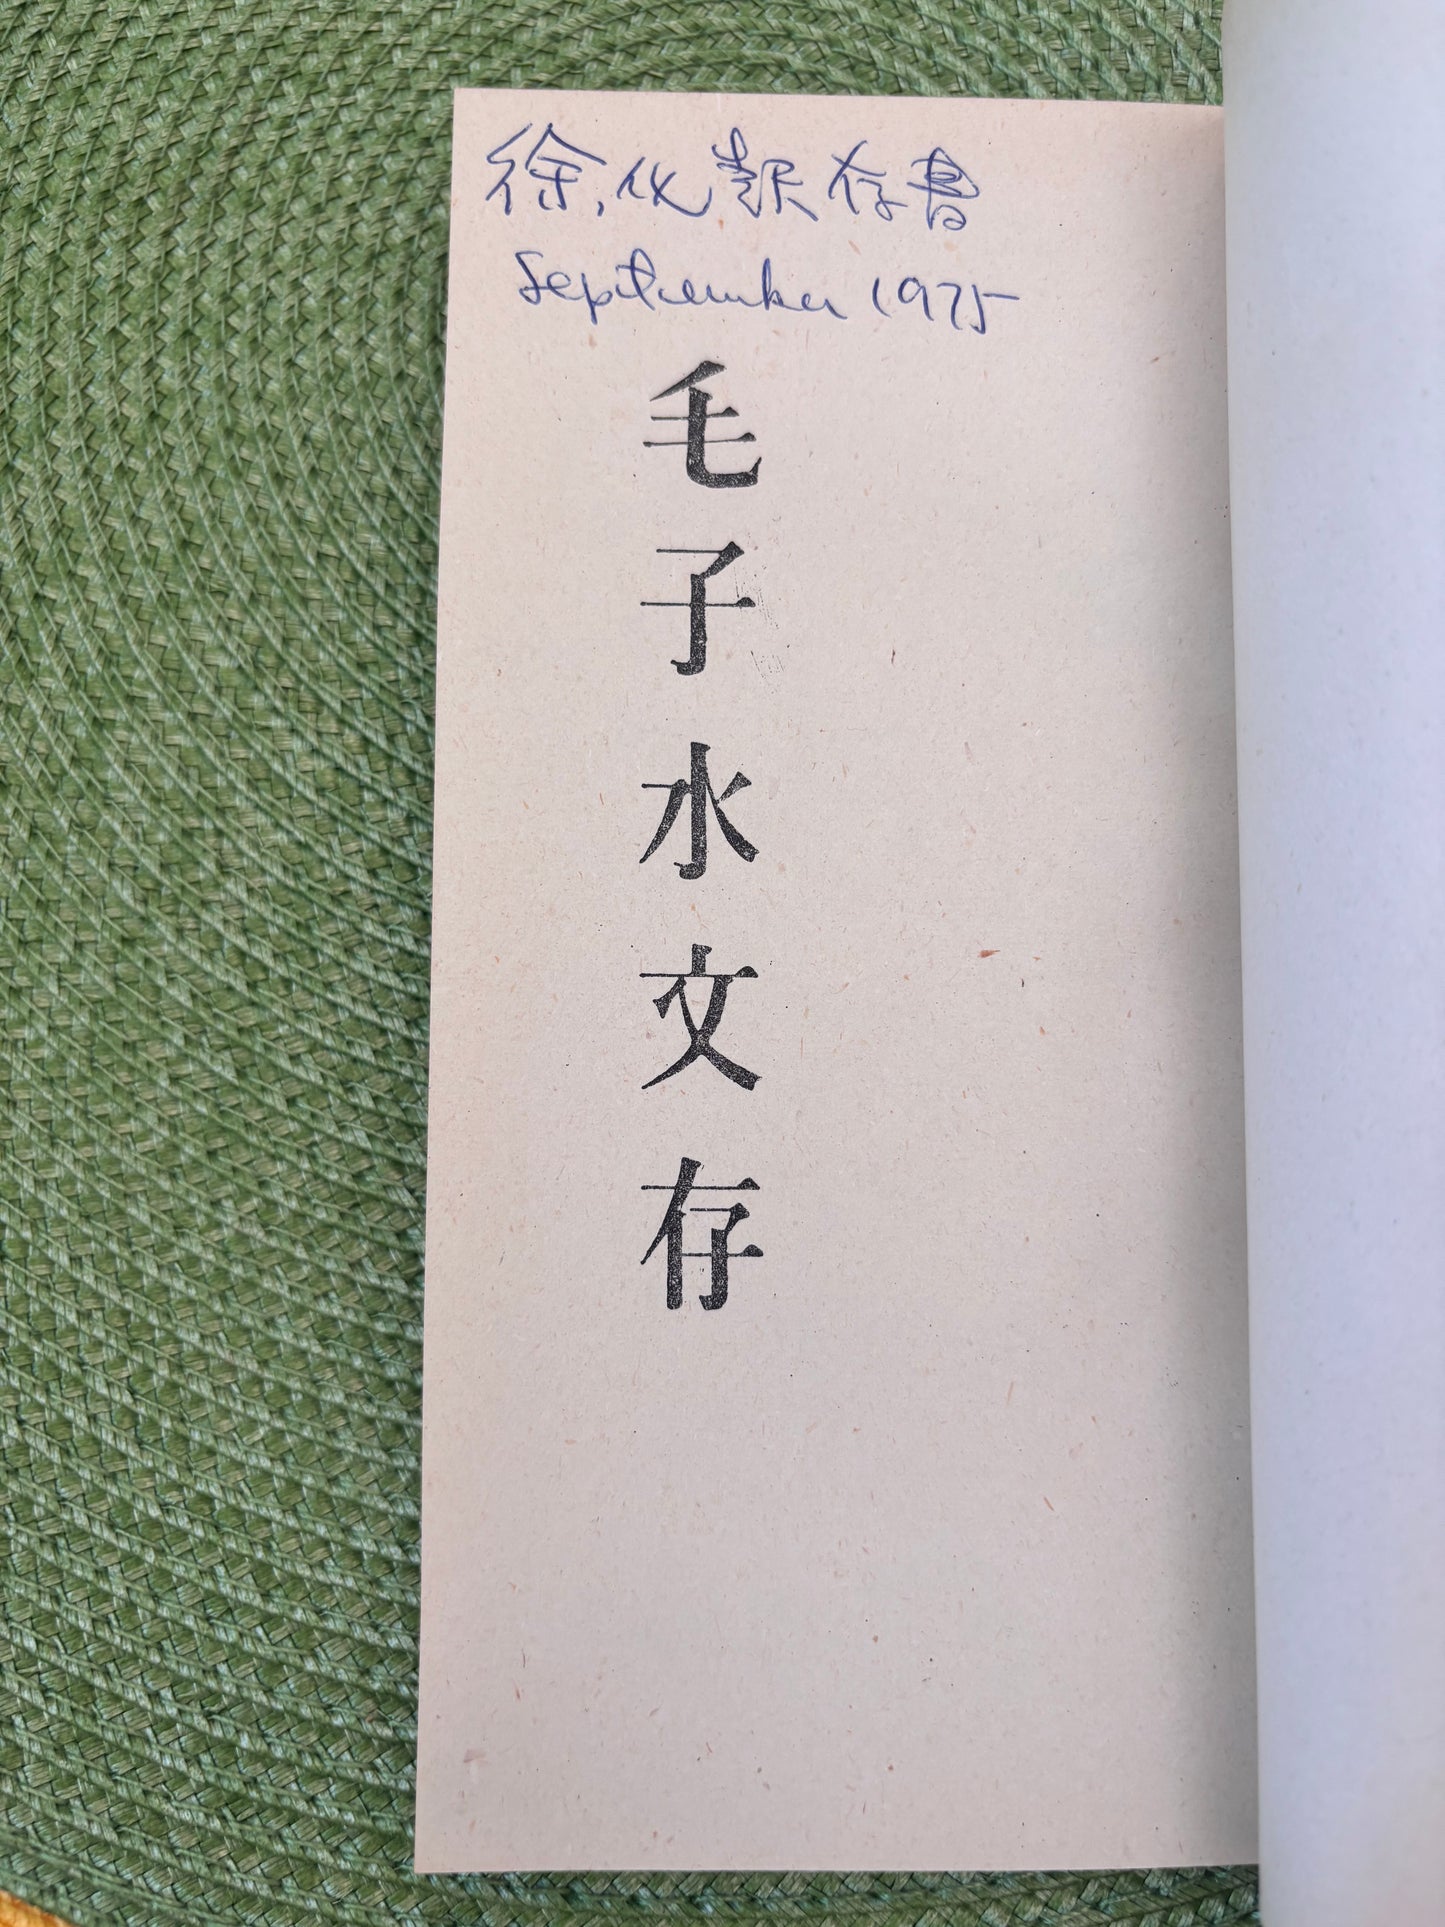 徐 存書
September 1975
毛子水文存